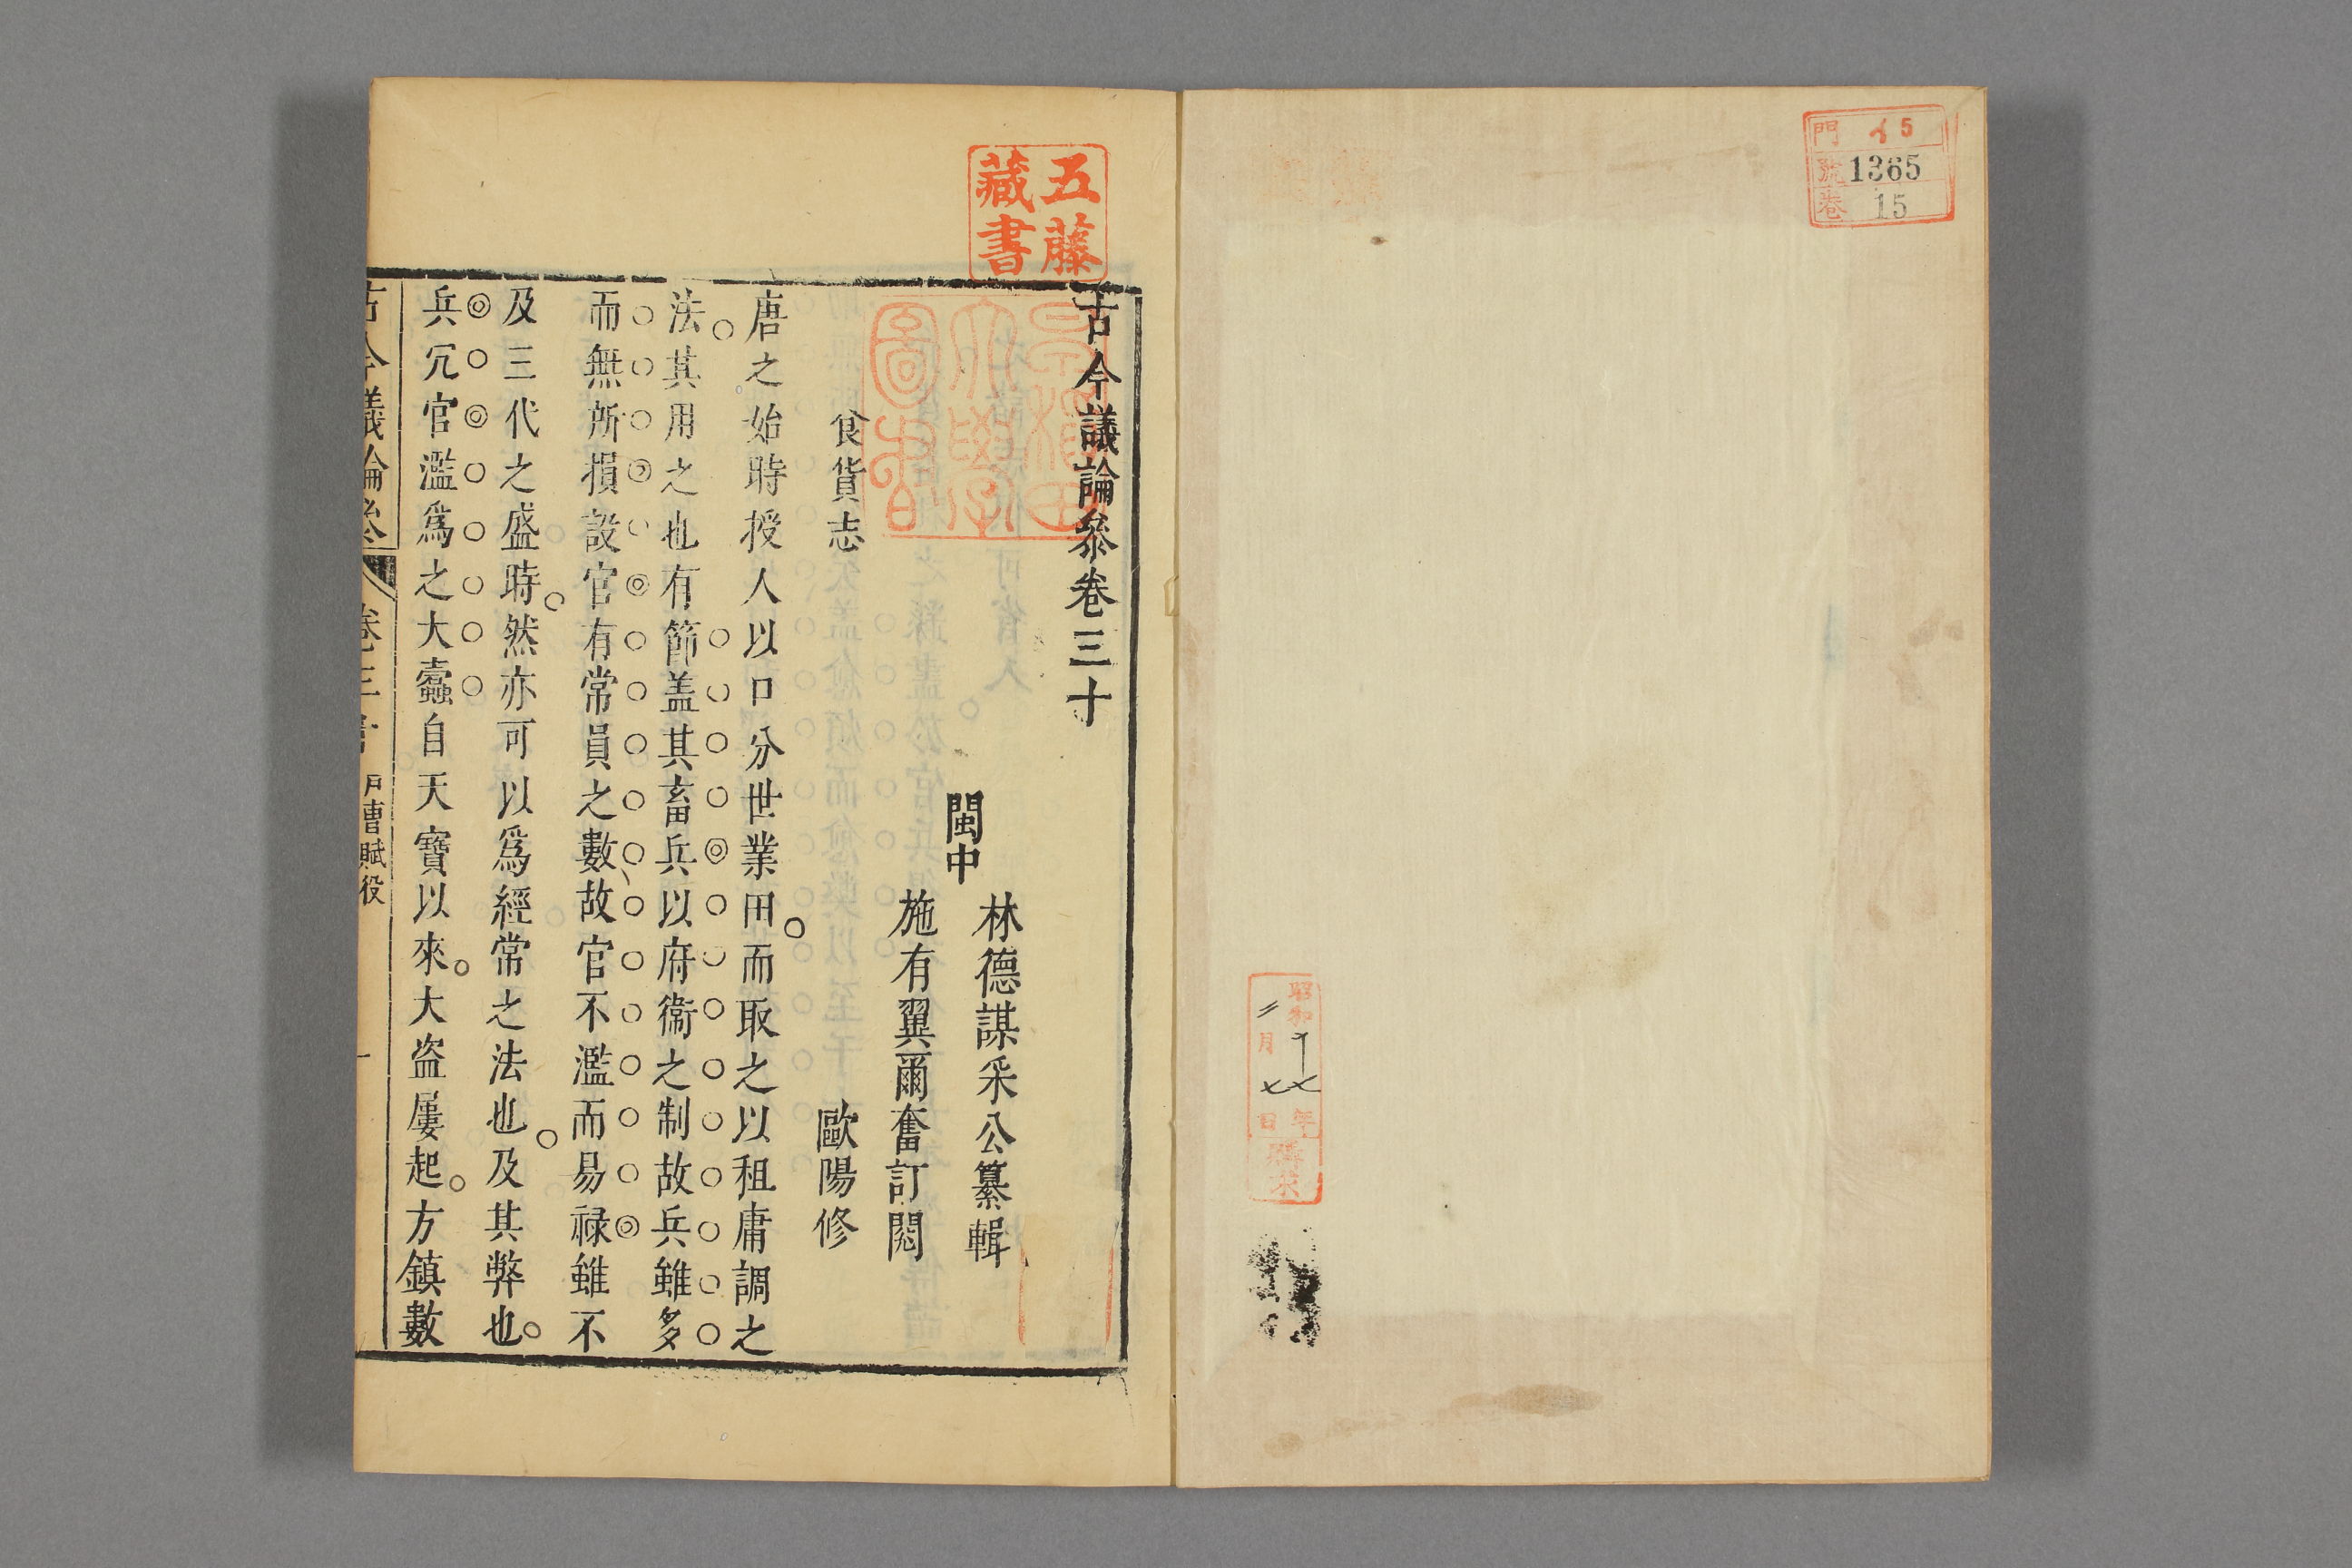 門 イ5
號 1365
卷 15
昭和十七年
二月七日
購求
五藤
藏書
早稲田
大學
圖書
古今議論叅卷三十
閩中
林德謀采公纂輯
施有翼爾奮訂閱
食貨志
歐陽修
唐之始時授人以口分世業田而取之以租庸調之
法其用之也有節盖其畜兵以府衞之制故兵雖多
而無所損設官有常員之數故官不濫而易禄雖不
及三代之盛時然亦可以爲經常之法也及其弊也
兵冗官濫爲之大蠹自天寶以來大盗屢起方鎮數
古今議論叅
卷三十
戸曹賦役
一